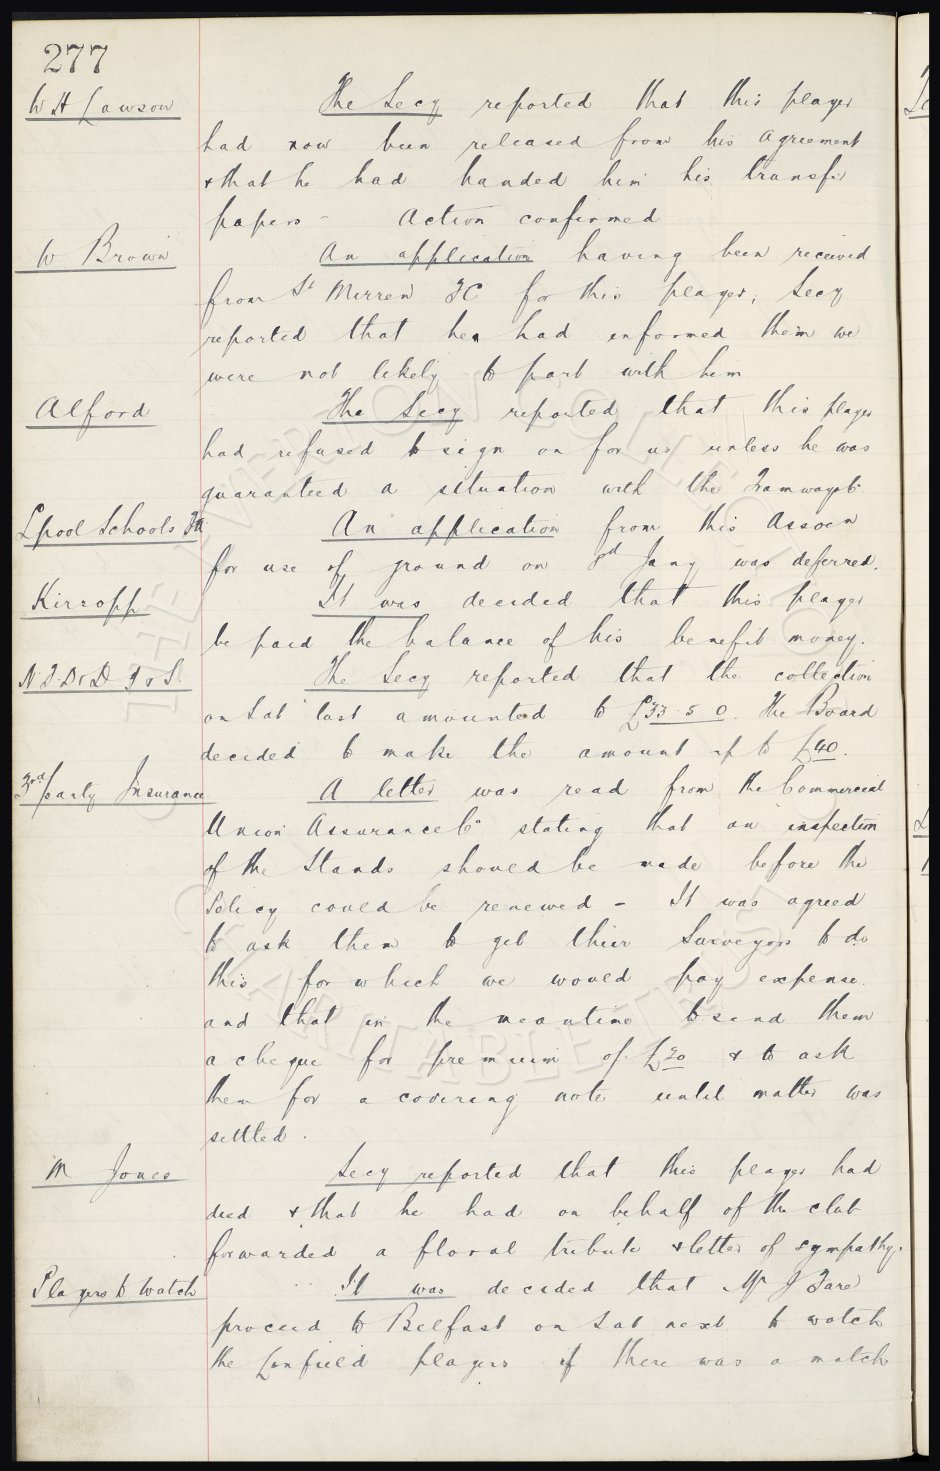 277
W H Lawson
The Secy reported that this player
had now been released from his agreement
& that he had handed him his transfer
papers - Action confirmed
W Brown
An application having been received
from St Mirren FC for this player, Secy
reported that he had informed them we
were not likely to part with him
Alford
The Secy reported that this player
had refused to sign on for us unless he was
guaranteed a situation with the Tramways Co
Lpool Schools FA
An application from this Assocn
for use of ground on Jany was deferred.
Kirsopp
It was decided that this player
be paid the balance of his benefit money.
The Secy reported that the collection
on Sat last amounted to £33. 5. 0. The Board
decided to make the amount up to £40.
3rd party Insurance
A letter was read from the Commercial
Union Assurance Co stating that an inspection
of the Stands should be made before the
Policy could be renewed - It was agreed
to ask them to get their Surveyors to do
this for which we would pay expense
and that in the meantime to send them
a cheque for premium of £20 & to ask
them for a covering note until matter was
settled.
M Jones
Secy reported that this player had
died & that he had on behalf of the club
forwarded a floral tribute & letter of sympathy.
Players to Watch
It was decided that Mr J Fare
proceed to Belfast on Sat next to watch
the Linfield players if there was a match
THE EVERTON COLLECTION
CHARITABLE TRUST